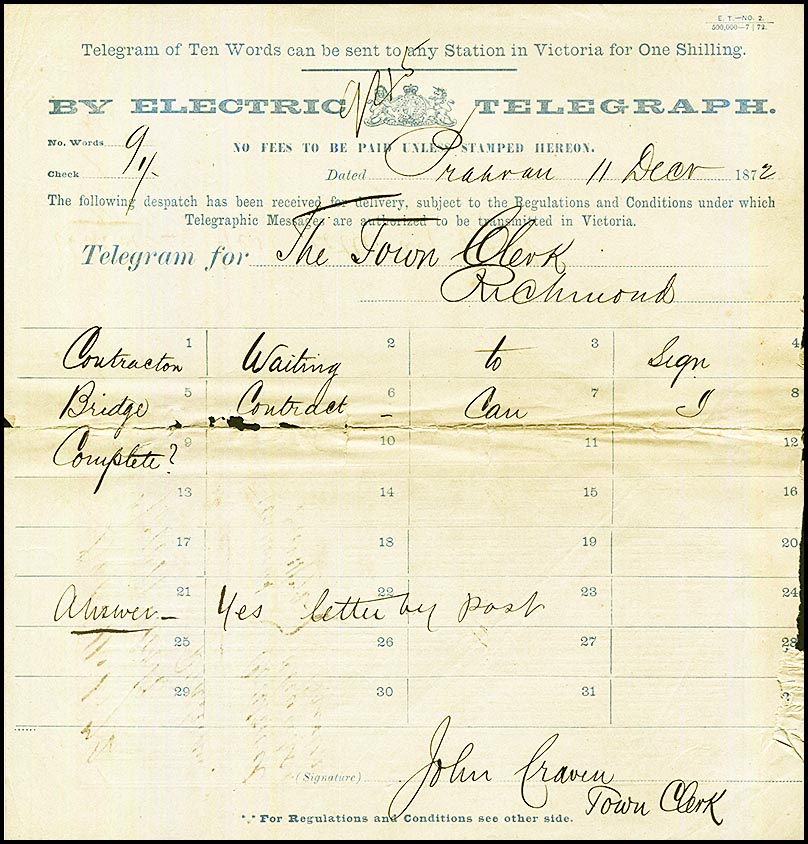 E. T.—NO. 2.
500,000—7 | 72.
Telegram of Ten Words can be sent to any Station in Victoria for One Shilling.
BY ELECTRIC TELEGRAPH.
No. Words 9
NO FEES TO BE PAID UNLESS STAMPED HEREON.
Check 1/-
Dated Prahran 11 Decr 1872
The following despatch has been received for delivery, subject to the Regulations and Conditions under which
Telegraphic Messages are authorized to be transmitted in Victoria.
Telegram for The Town Clerk
Richmond
1 2 3 4
Contractor Waiting to Sign
5 6 7 8
Bridge Contract - Can I
9 10 11 12
Complete?
13 14 15 16
17 18 19 20
21 22 23 24
Answer - Yes letter by post
25 26 27 28
29 30 31
(Signature) John Craven
Town Clerk
For Regulations and Conditions see other side.